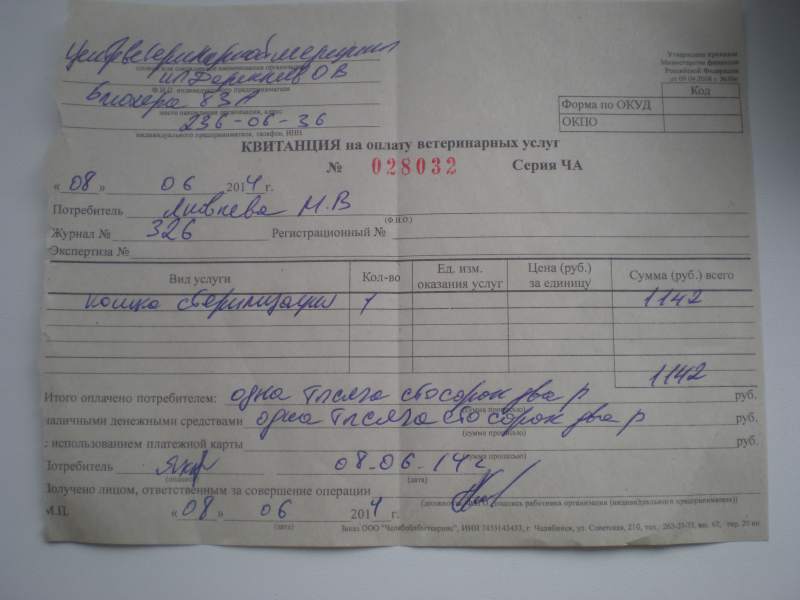 Центр ветеринарной медицины
Утверждена приказом
Министерства финансов
Российской Федерации
от 09.04.2008 г.
ИП О В
Ф.И.О. индивидуального предпринимателя
Блюхера 83А
место нахождения организации, адрес
236-06-36
индивидуального предпринимателя, телефон, ИНН
Код
Форма по ОКУД
ОКПО
КВИТАНЦИЯ на оплату ветеринарных услуг
№ 028032 Серия ЧА
« 08 » 06 2014 г.
Потребитель М.В
(Ф.И.О.)
Журнал № 326 Регистрационный №
Экспертиза №
Вид услуги Кол-во Ед. изм. оказания услуг Цена (руб.) за единицу Сумма (руб.) всего
кошка стерилизация 1 1142
1142
Итого оплачено потребителем: одна тысяча сто сорок два р руб.
(сумма прописью)
наличными денежными средствами одна тысяча сто сорок два р руб.
(сумма прописью)
с использованием платежной карты руб.
(сумма прописью)
Потребитель 08.06.14г
(подпись) (дата)
Получено лицом, ответственным за совершение операции
подпись работника организации (индивидуального предпринимателя))
М.П. « 08 » 06 2014 г.
(дата)
Заказ ООО ИНН 7453143453, г. Челябинск, ул. Советская, 210, тел.